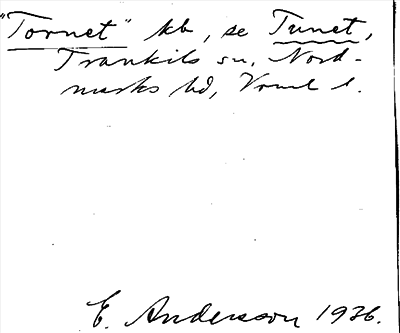 "Tornet" kb, se Tunet,
Trankils sn, Nord-
marks hd, Vrml l.
E. Andersson 1926.